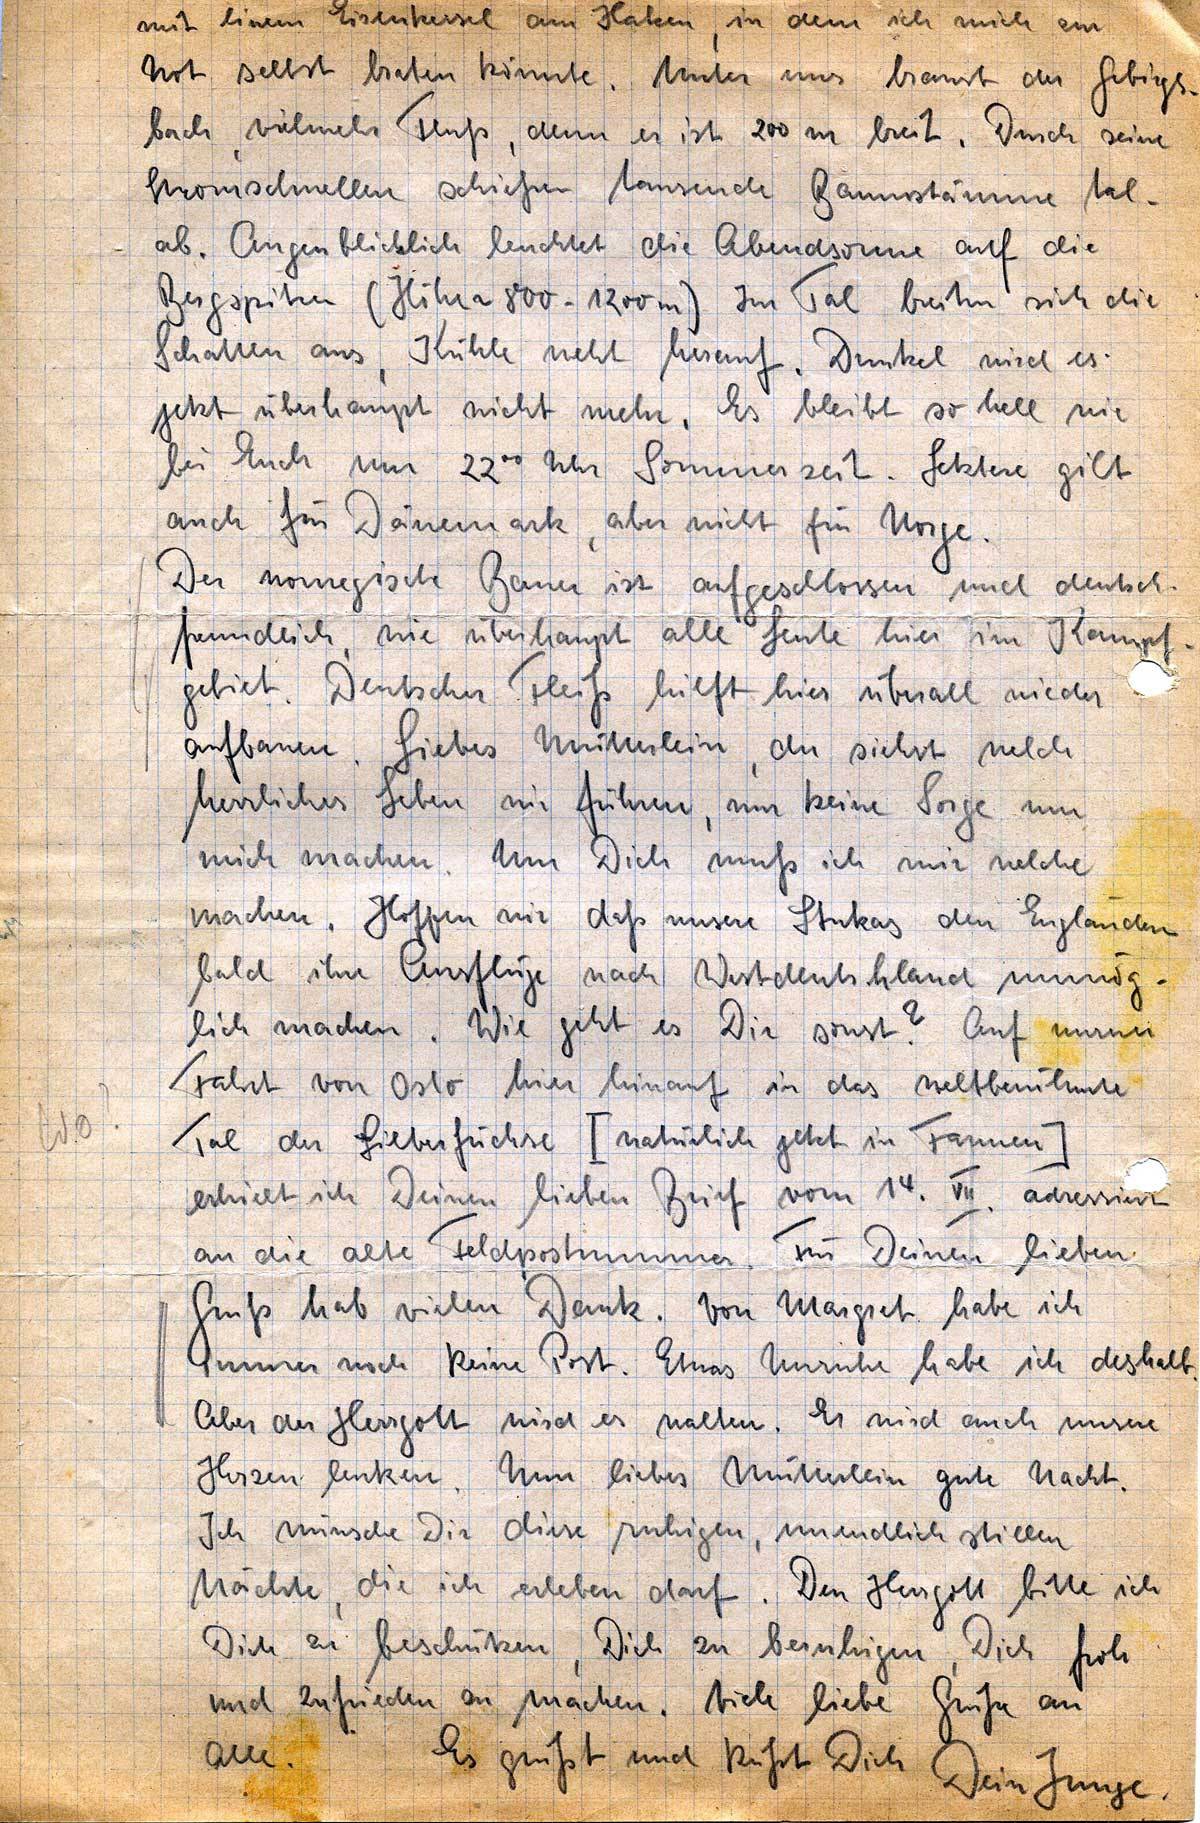 mit einem Eisenkessel am Haken, in dem ich mich zur
Not selbst braten könnte. Unter uns braust der Gebirgs-
bach, vielmehr Fluß, denn er ist 200 m breit. Durch seine
Stromschnellen schießen tausende Baumstämme tal-
ab. Augenblicklich leuchtet die Abendsonne auf die
Bergspitzen (Höhe ~ 800 - 1200 m) Im Tal breiten sich die
Schatten aus, Kühle weht herauf. Dunkel wird es
jetzt überhaupt nicht mehr. Es bleibt so hell wie
bei Euch um 22°° Uhr Sommerzeit. Letztere gilt
auch für Dänemark, aber nicht für Norge.
Der norwegische Bauer ist aufgeschlossen und deutsch-
freundlich, wie überhaupt alle Leute hier im Kampf-
gebiet. Deutscher Fleiß hilft hier überall wieder
aufbauen. Liebes Mütterlein, du siehst welch
herrliches Leben wir führen, nur keine Sorge um
mich machen. Um Dich muß ich mir welche
machen. Hoffen wir daß unsere Stukas den Engländern
bald ihre Ausflüge nach Westdeutschland unmög-
lich machen. Wie geht es Dir sonst? Auf unserer
Fahrt von Oslo hier hinauf in das weltberühmte
Wo?
Tal der Silberfüchse [natürlich jetzt in Farmen]
erhielt ich Deinen lieben Brief vom 14. VII. adressiert
an die alte Feldpostnummer. Für Deinen lieben
Gruß hab vielen Dank. Von Margret habe ich
immer noch keine Post. Etwas Unruhe habe ich deshalb.
Aber der Herrgott wird es walten. Er wird auch unsere
Herzen lenken. Nun liebes Mütterlein gute Nacht.
Ich wünsche Dir diese ruhigen, unendlich stillen
Nächte, die ich erleben darf. Den Herrgott bitte ich
Dich zu beschützen, Dich zu beruhigen, Dich froh
und zufrieden zu machen. Viele liebe Grüße an
alle. Es grüßt und küßt Dich Dein Junge.